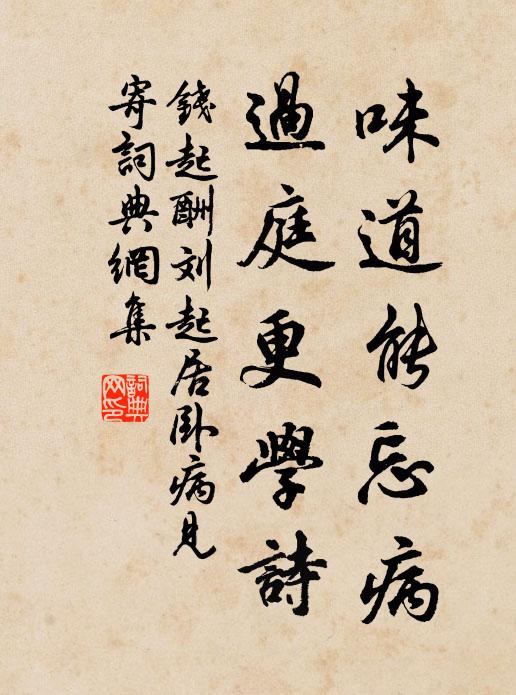 味道能忘病
過庭更學詩
錢起酬刘起居卧病見
寄詞典網集
詞典网印